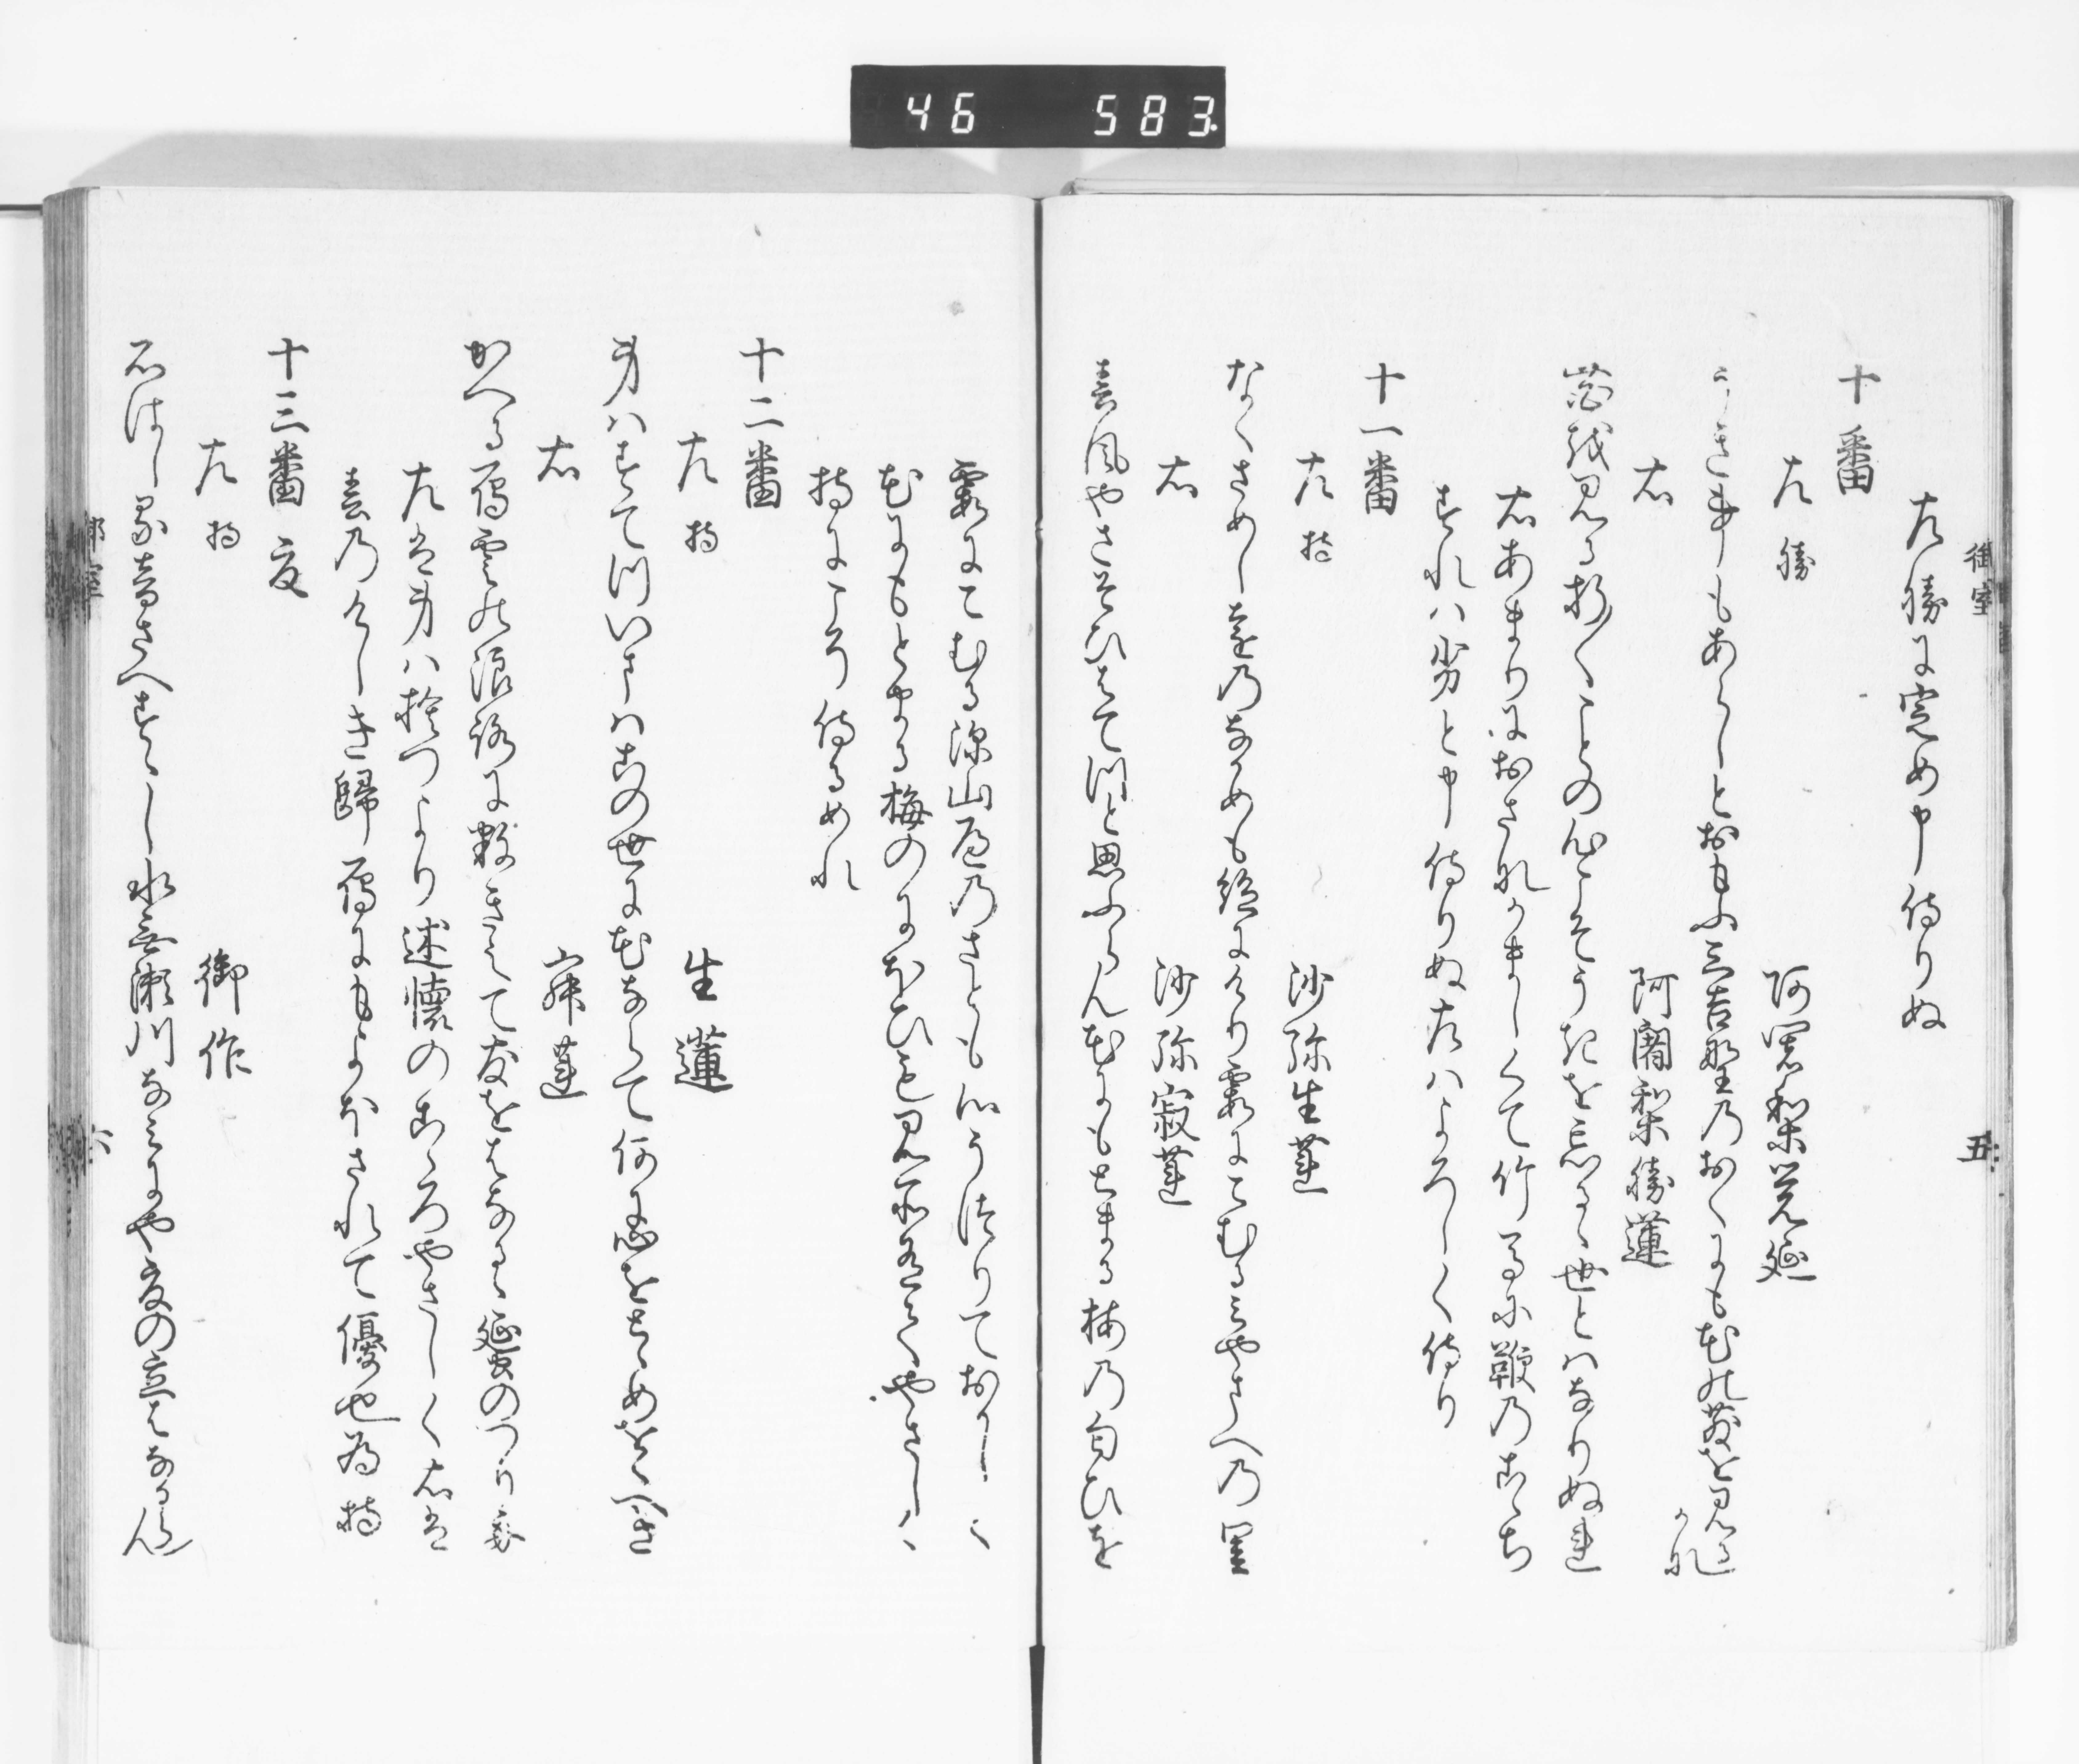 46 583
御室 五
左勝に定め申侍りぬ
十番
左 勝 阿闍梨覚延
うき事もあらしとおもふ三吉野のおくにも花の散を見るかな
右 阿闍梨勝蓮
花を見る折々ことの心こそうきを忘るゝ世とはなりぬれ
右あまりにおさなかましくて竹馬に鞭のこゝち
すれは劣と申侍りぬ左はよろしく侍り
十一番
左 持 沙弥生蓮
なくさめし遠のなかめも絶にけり霞にこむるみやまへの里
右 沙弥寂蓮
春風やさそひはてつと思ふらん花にもとまる梅の匂ひを
霞にこむる深山辺のさとも心うつりておかしく
花にもとまる梅のにほひも見所有てやさしく
持にこそ侍るめれ
十二番
左 持 生蓮
身はすてついまはこの世に花ならて何に心をとゝめをくへき
右 寂蓮
かへる雁雲の浪路に数きえて友をはなるゝ蜑のつり舟
左は身は捨つより述懐のこゝろやさしく右は
春のけしき帰雁にもよほされて優也為持
十三番 夏
左 持 御作
石はしる音さへすゝし水無瀬川なみにや夏の立はなるらん
御室 六